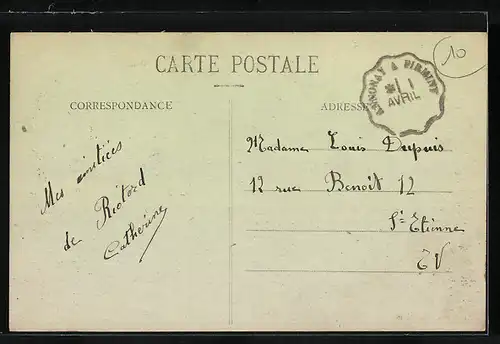 10
CARTE POSTALE
ANNONAY A FIRMINY
*1 1
AVRIL
CORRESPONDANCE
ADRESSE
Mes amitiés
de Riotord
Catherine
Madame Louis Dupuis
12 rue Benoît 12
St Etienne
EV